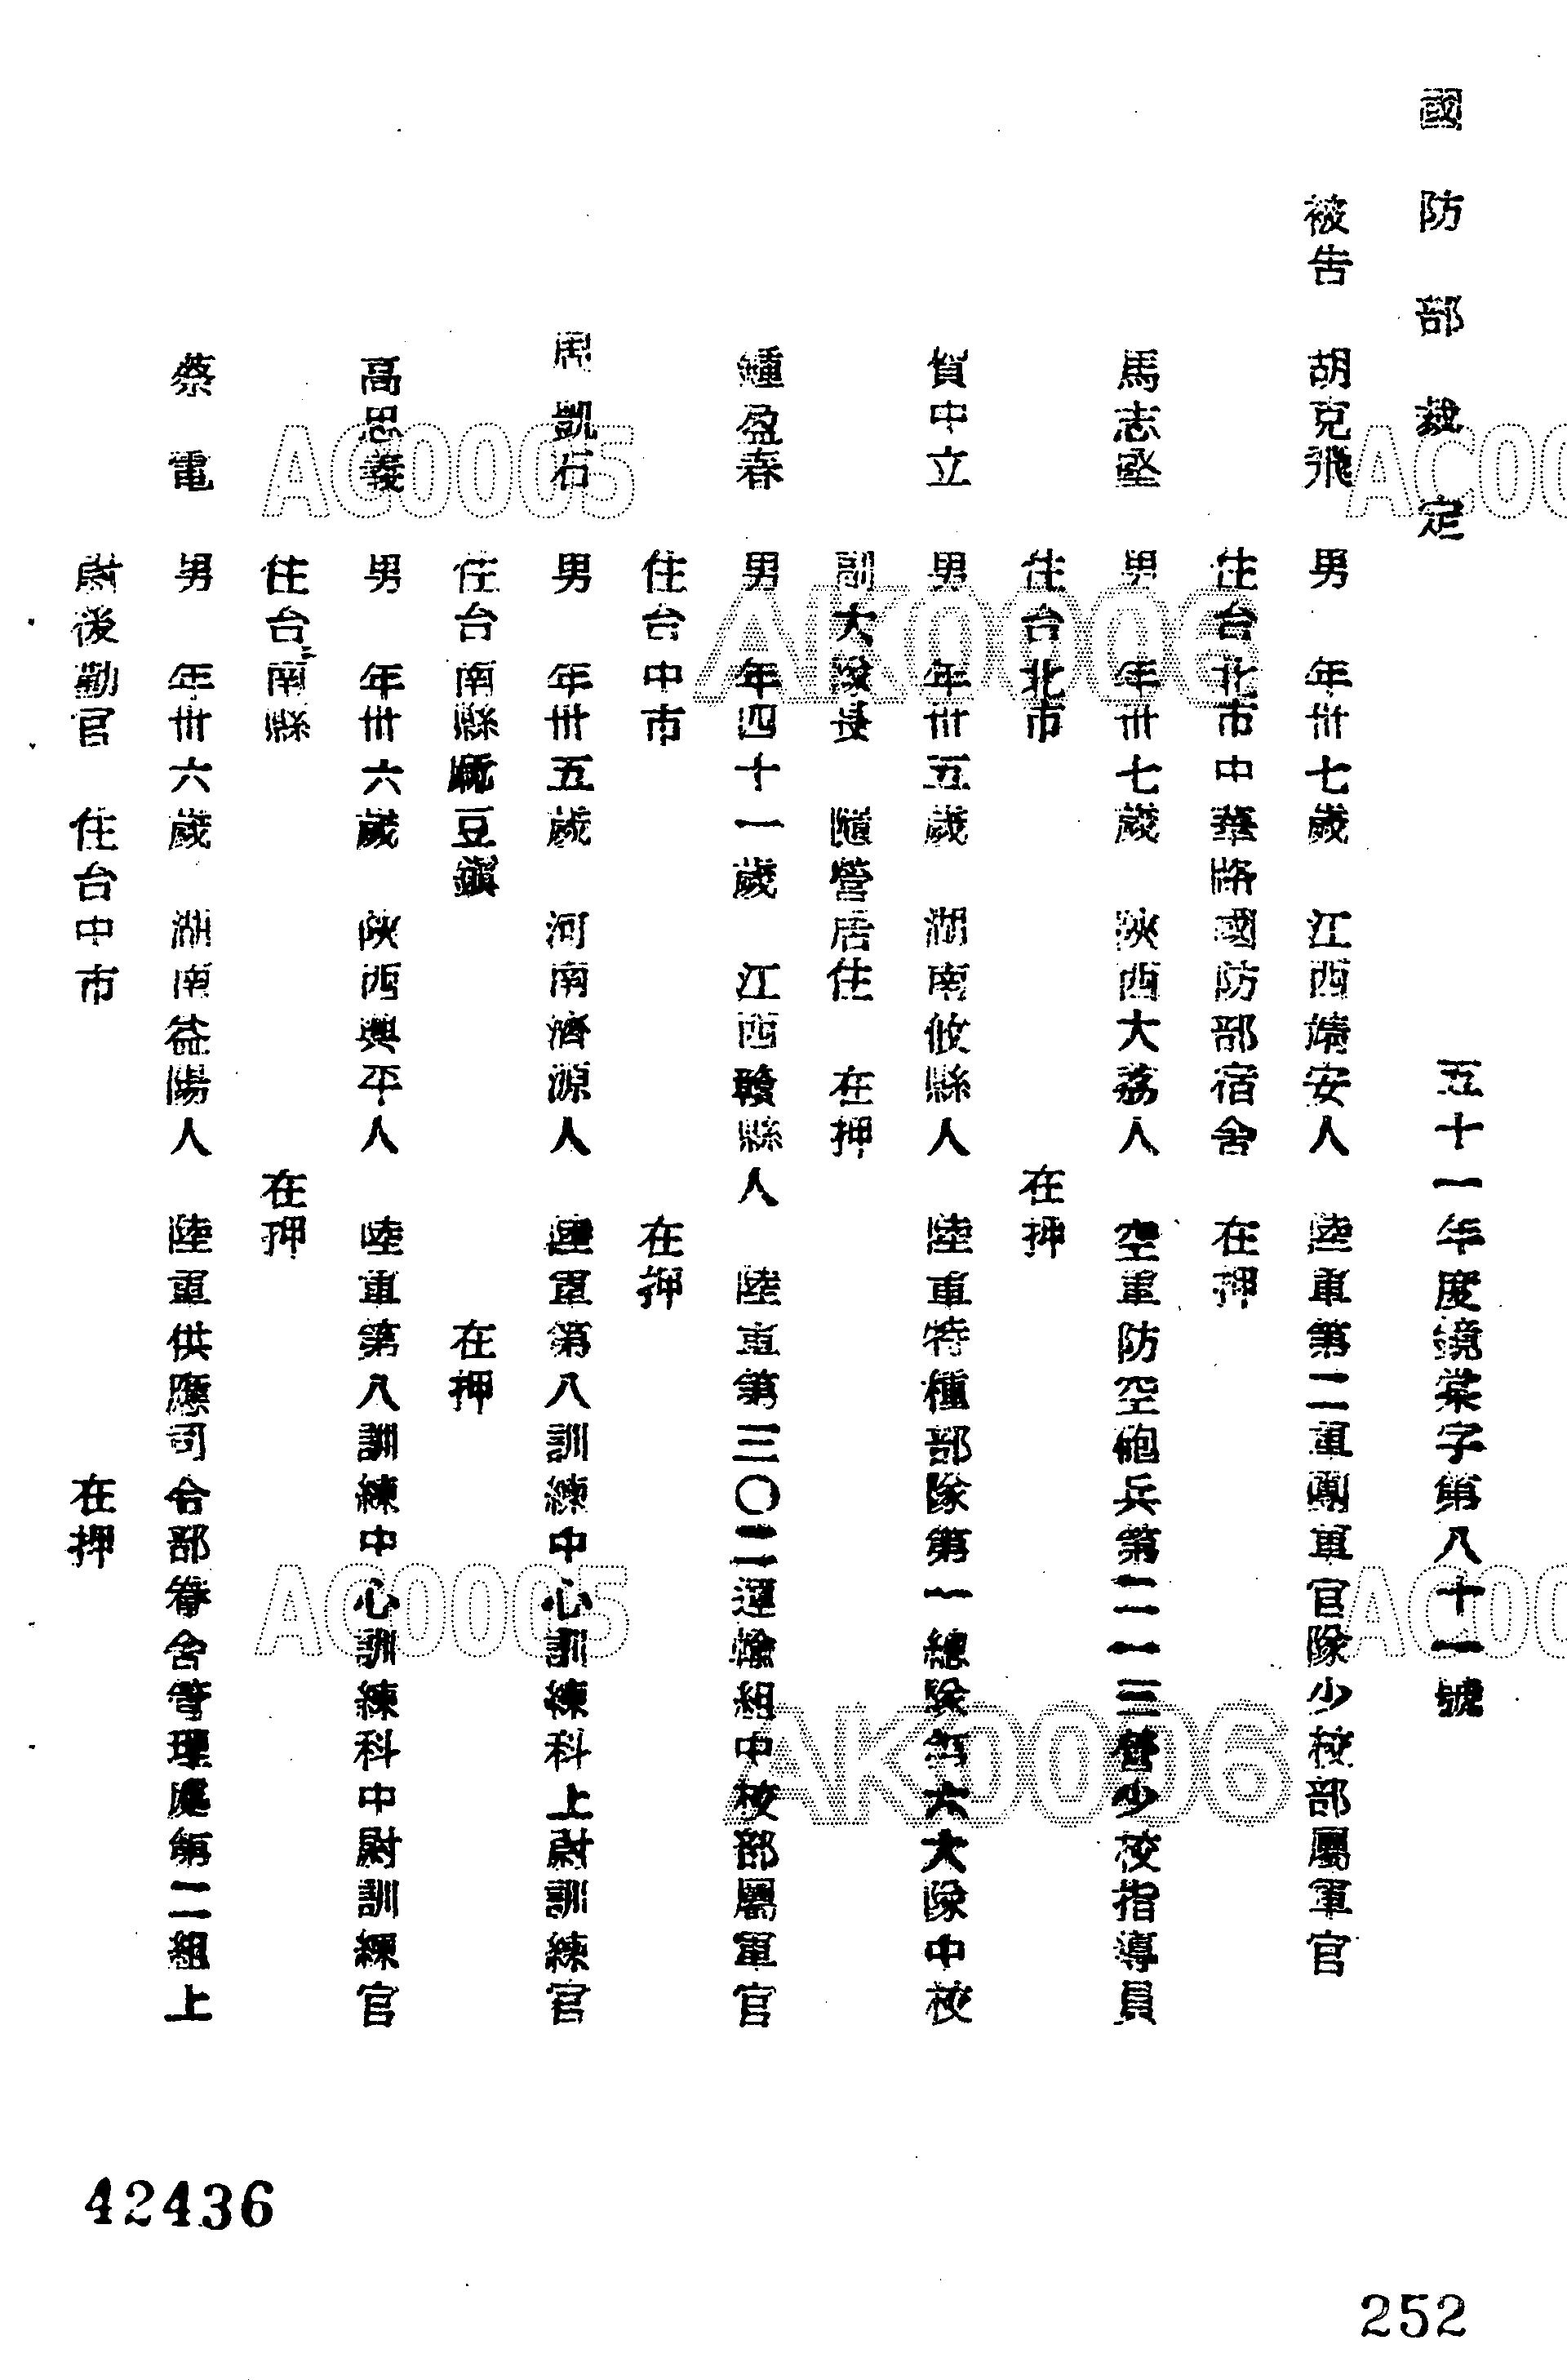 國防部裁定
五十一年度鏡棠字第八十一號
被告 胡克飛 男 年卅七歲 江西靖安人 陸軍第二軍團軍官隊少校部屬軍官
住台北市中華路國防部宿舍 在押
馬志堅 男 年卅七歲 陝西大荔人 空軍防空砲兵第二一三營少校指導員
住台北市 在押
賀中立 男 年卅五歲 湖南攸縣人 陸軍特種部隊第一總隊第六大隊中校
副大隊長 隨營居住 在押
鍾盈春 男 年四十一歲 江西贛縣人 陸軍第三〇二運輸組中校部屬軍官
住台中市 在押
周凱石 男 年卅五歲 河南濟源人 陸軍第八訓練中心訓練科上尉訓練官
住台南縣 豆鎮 在押
高思義 男 年卅六歲 陝西興平人 陸軍第八訓練中心訓練科中尉訓練官
住台南縣 在押
蔡電 男 年卅六歲 湖南益陽人 陸軍供應司令部眷舍管理處第二組上
尉後勤官 住台中市 在押
AC0005
AC00
AK0006
AC0005
AC00
AK0006
42436
252